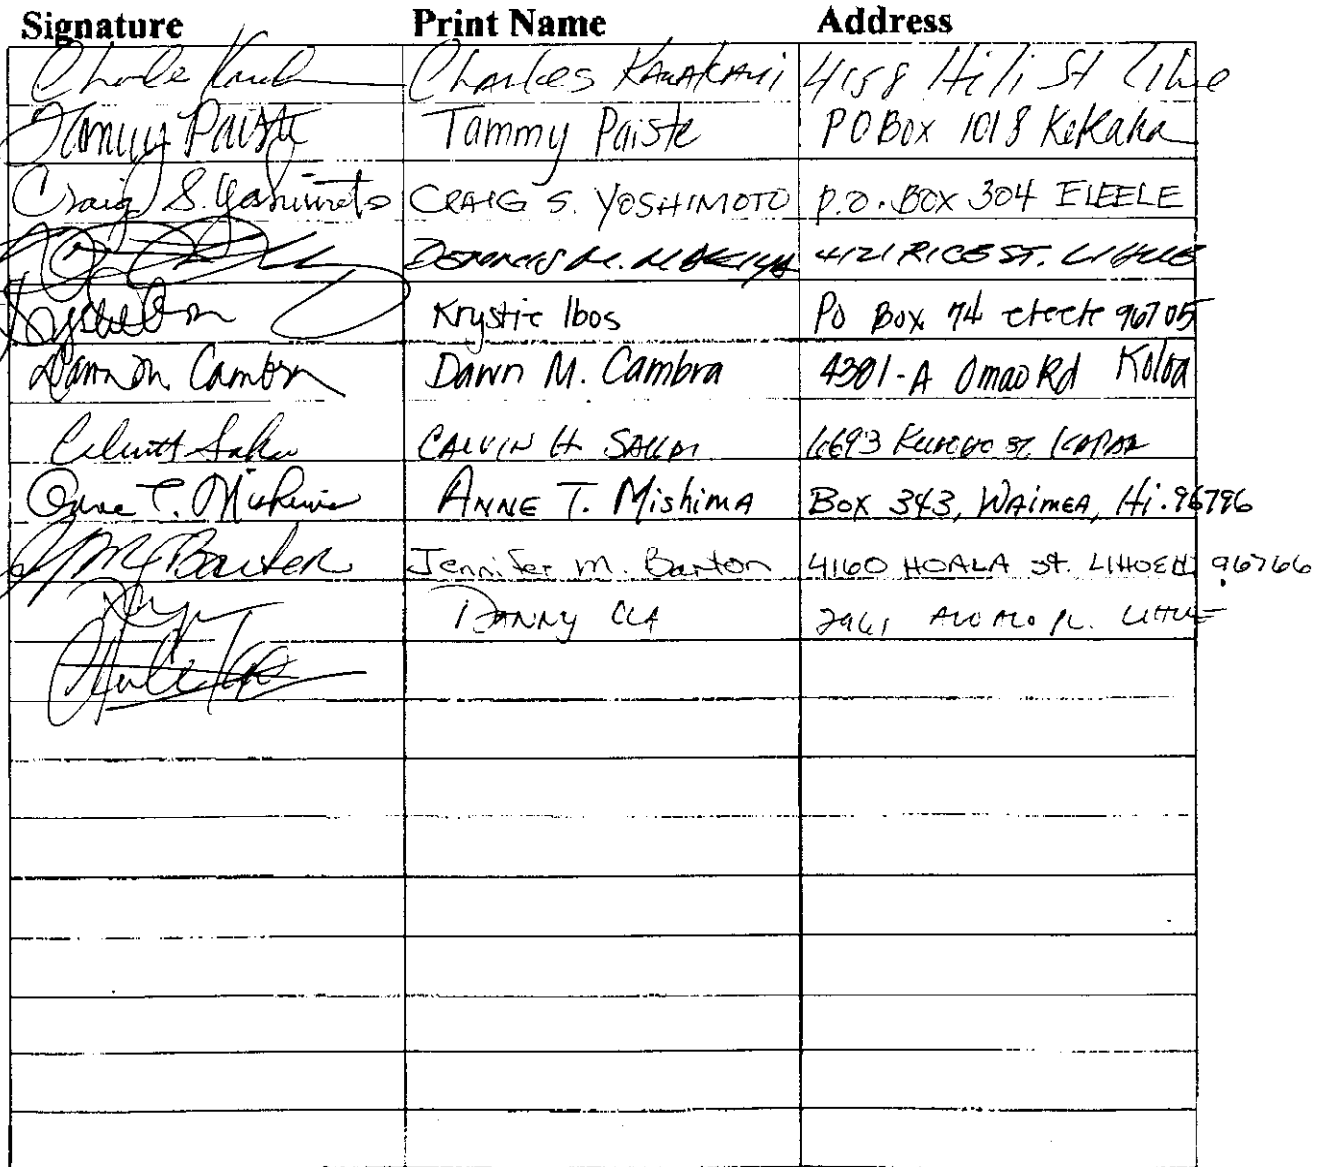 Signature Print Name Address
Charles Kawakami 4158 Hili St Lihue
Tammy Paiste Tammy Paiste PO Box 1018 Kekaha
Craig S. Yoshimoto CRAIG S. YOSHIMOTO P.O. BOX 304 ELEELE
DENNIS M. 4121 RICE ST. LIHUE
Krystie Ibos PO Box 74 eleele 96705
Dawn M. Cambra Dawn M. Cambra 4301-A Omao Rd Koloa
CALVIN H. SAKAI 6693 St KAPAA
Anne T. Mishima ANNE T. Mishima Box 343, WAIMEA, Hi. 96796
Jennifer M. Barton 4160 HOALA St. LIHUE HI 96766
DANNY 2961 PL. LIHUE